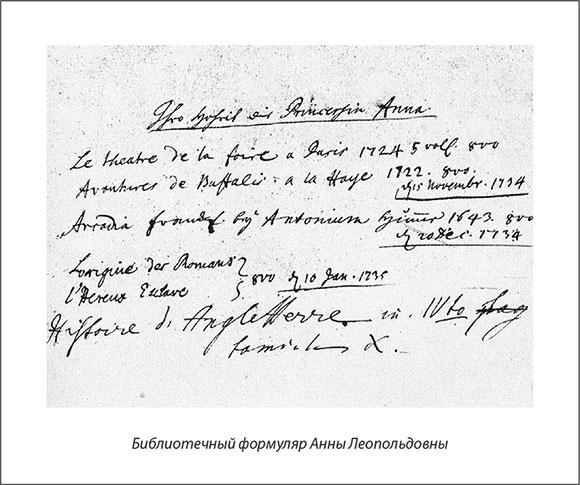 Ihro Hoheit die Princessin Anna.
Le theatre de la foire a Paris 1724 5 voll. 8vo
Avantures de Buffalis. a la Haye 1722. 8vo.
15 Novembr. 1734
Arcadia Antonium 1643. 8vo
20 Dec. 1734
Lorigine des Romans
8vo 10 Jan. 1735
l'Hereux Esclave
Histoire d'Angleterre. in. IVto
X.
Библиотечный формуляр Анны Леопольдовны